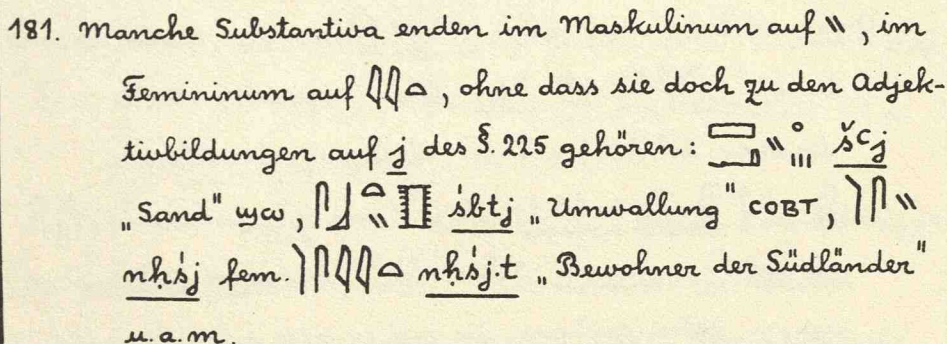 181. Manche Substantiva enden im Maskulinum auf 𓏭, im
Femininum auf 𓇋𓇋𓏏, ohne dass sie doch zu den Adjek-
tivbildungen auf j des §. 225 gehören: 𓈙𓂝𓏭𓈒𓏥 šꜥj
„Sand" ϣⲱ, 𓋴𓃀𓏏𓏭𓊅 śbtj „Umwallung" ⲥⲟⲃⲧ, 𓌙𓋴𓏭
nḥśj fem. 𓌙𓋴𓇋𓇋𓏏 nḥśj.t „Bewohner der Südländer"
u.a.m.